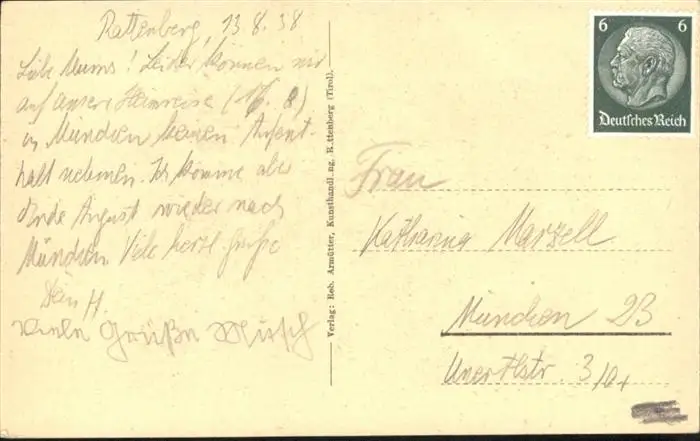 Rattenberg, 13.8.38
Liebe Mums! Leider können wir
auf unsere Heimreise (16.8)
in München keinen Aufent-
halt nehmen. Ich komme aber
Ende August wieder nach
München. Viele herzl Grüße
Dein H.
Viele Grüße
Verlag: Rob. Armütter, Kunsthandl.ng, R.ttenberg (Tirol).
6 6
Deutsches Reich
Frau
Katharina Marzell
München 23
3/0r